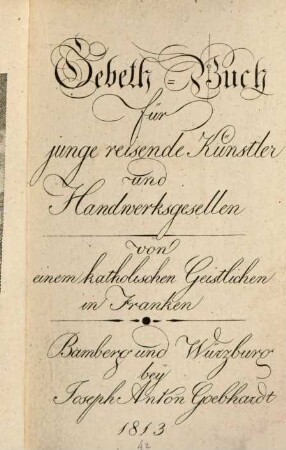 Gebeth-Buch
für
junge reisende Künstler
und
Handwerksgesellen
von
einem katholischen Geistlichen
in Franken
Bamberg und Würzburg
bey
Joseph Anton Goebhardt
1813
42